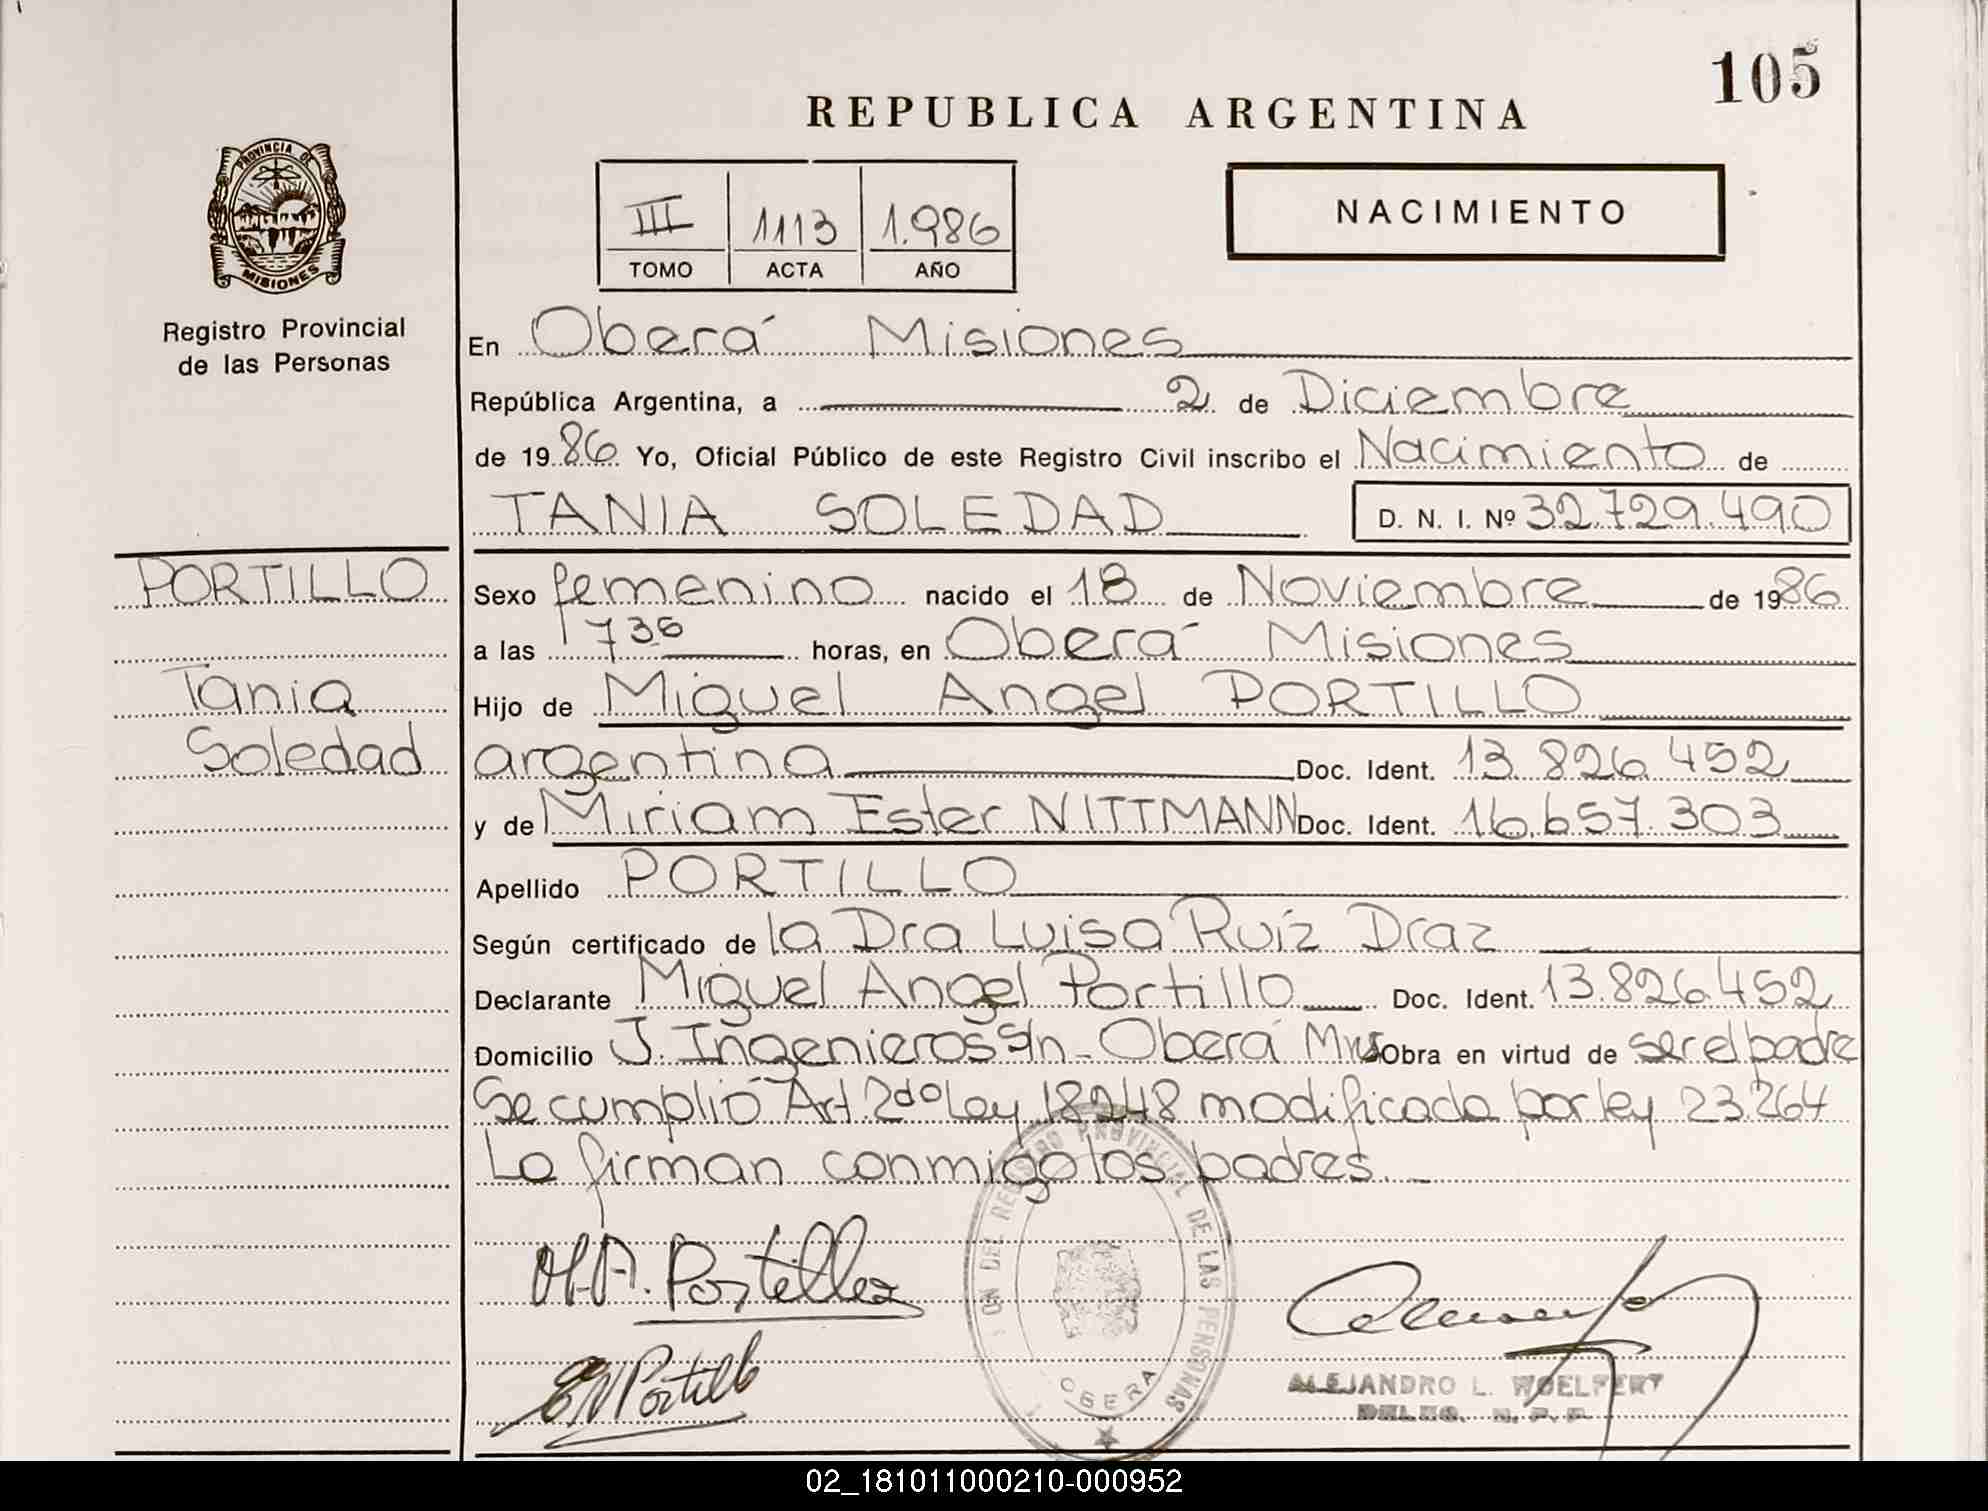 105
REPUBLICA ARGENTINA
PROVINCIA DE
MISIONES
Registro Provincial
de las Personas
III 1113 1.986
TOMO ACTA AÑO
NACIMIENTO
En Oberá Misiones
República Argentina, a 2 de Diciembre
de 1986 Yo, Oficial Público de este Registro Civil inscribo el Nacimiento de
TANIA SOLEDAD D. N. I. Nº 32.729.490
PORTILLO
Tania
Soledad
Sexo femenino nacido el 18 de Noviembre de 1986
a las 1736 horas, en Oberá Misiones
Hijo de Miguel Angel PORTILLO
argentina Doc. Ident. 13.826.452
y de Miriam Ester NITTMANN Doc. Ident. 16.657.303
Apellido PORTILLO
Según certificado de la Dra Luisa Ruíz Draz
Declarante Miguel Angel Portillo Doc. Ident. 13.826.452
Domicilio J. Ingenieros S/n - Oberá Mns Obra en virtud de ser el padre
Se cumplió Art. 2do Ley 18248 modificada por ley 23.264
Lo firman conmigo los padres.
M.A. Portillo
EN Portillo
ON DEL REGISTRO PROVINCIAL DE LAS PERSONAS
OBERA
ALEJANDRO L. WOELFERT
02_181011000210-000952